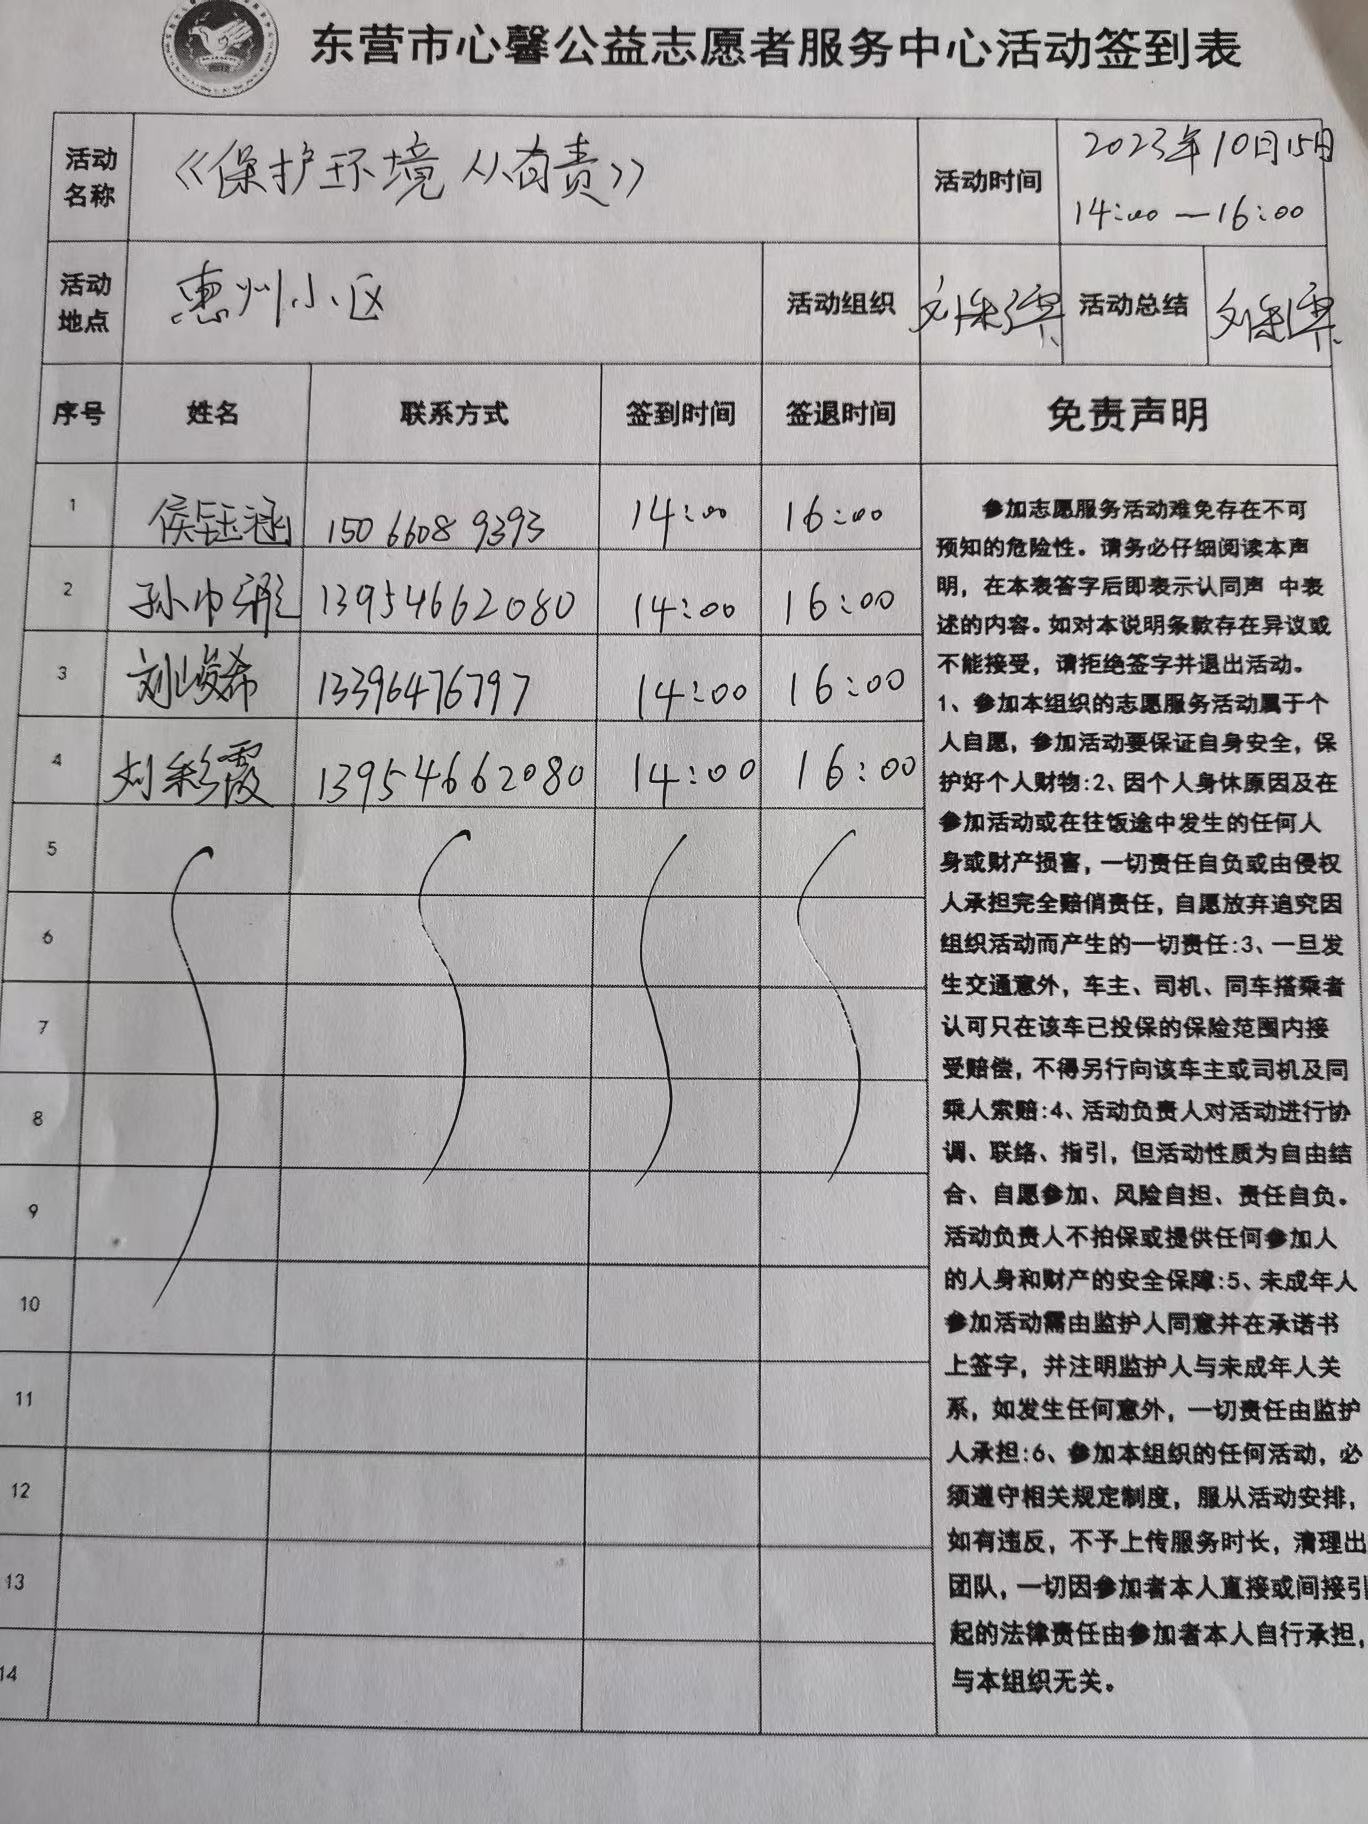 东营市心馨公益志愿者服务中心活动签到表
活动名称 《保护环境 从有责》 活动时间 2023年10日15日
14:00—16:00
活动地点 惠州小区 活动组织 刘彩霞 活动总结 刘彩霞
序号 姓名 联系方式 签到时间 签退时间 免责声明
1 侯钰涵 150 6608 9393 14:00 16:00
2 孙巾雅 13954662080 14:00 16:00
3 刘峻希 13396476797 14:00 16:00
4 刘彩霞 13954662080 14:00 16:00
5
6
7
8
9
10
11
12
13
14
参加志愿服务活动难免存在不可
预知的危险性。请务必仔细阅读本声
明，在本表签字后即表示认同声 中表
述的内容。如对本说明条款存在异议或
不能接受，请拒绝签字并退出活动。
1、参加本组织的志愿服务活动属于个
人自愿，参加活动要保证自身安全，保
护好个人财物:2、因个人身休原因及在
参加活动或在往饭途中发生的任何人
身或财产损害，一切责任自负或由侵权
人承担完全赔俏责任，自愿放弃追究因
组织活动而产生的一切责任:3、一旦发
生交通意外，车主、司机、同车搭乘者
认可只在该车已投保的保险范围内接
受赔偿，不得另行向该车主或司机及同
乘人索赔:4、活动负责人对活动进行协
调、联络、指引，但活动性质为自由结
合、自愿参加、风险自担、责任自负。
活动负责人不拍保或提供任何参加人
的人身和财产的安全保障:5、未成年人
参加活动需由监护人同意并在承诺书
上签字，并注明监护人与未成年人关
系，如发生任何意外，一切责任由监护
人承担:6、参加本组织的任何活动，必
须遵守相关规定制度，服从活动安排，
如有违反，不予上传服务时长，清理出
团队，一切因参加者本人直接或间接引
起的法律责任由参加者本人自行承担，
与本组织无关。